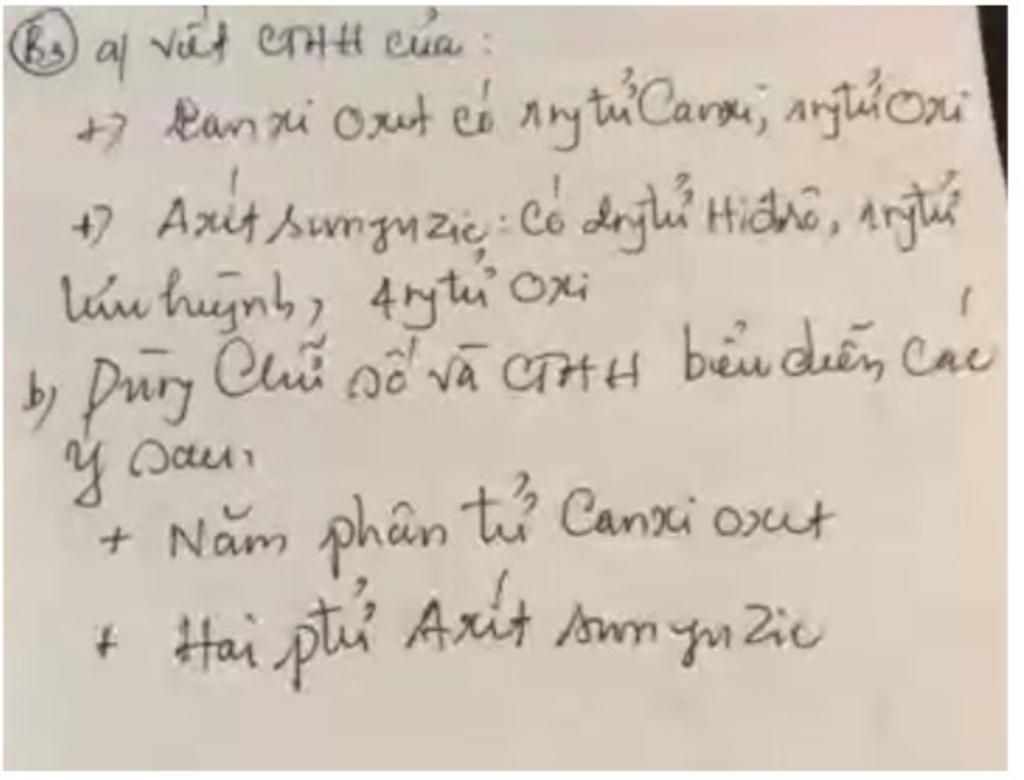 B3 a) Viết CTHH của :
+) Canxi oxit có 1 ng tử Canxi, 1 ng tử Oxi
+) Axít sunguzic : Có 2 ng tử Hiđrô, 1 ng tử
lưu huỳnh, 4 ng tử Oxi
b) Dùng Chữ số và CTHH biểu diễn Các
ý sau:
+ Năm phân tử Canxi oxit
+ Hai ptử Axít sunguzic